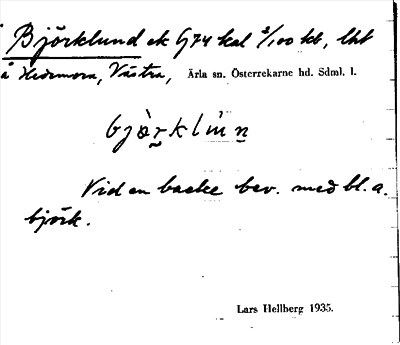 Björklund ek G74 kal 2/100 kb, lht
å Hedemora, Västra, Ärla sn. Österrekarne hd. Sdml. l.
bjö̀r̯klún̯
Vid en backe bev. med bl. a.
björk.
Lars Hellberg 1935.